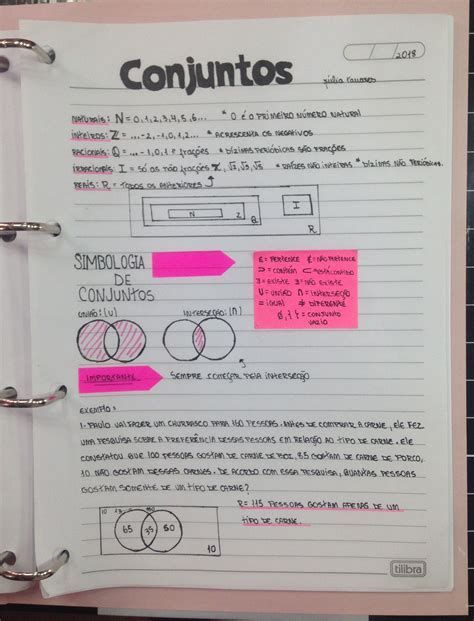 Conjuntos
/ / 2018
NATURAIS: N = 0, 1, 2, 3, 4, 5, 6... * O É O PRIMEIRO NÚMERO NATURAL
INTEIROS: Z = ...-2, -1, 0, 1, 2... * ACRESCENTA OS NEGATIVOS
RACIONAIS: Q = ...-1, 0, 1 e frações * DÍZIMAS PERIÓDICAS SÃO FRAÇÕES
IRRACIONAIS: I = SÓ AS NÃO FRAÇÕES π, √2, √3, √5 * RAÍZES NÃO INTEIRAS * DÍZIMAS NÃO PERIÓDICAS.
REAIS: R = TODOS OS ANTERIORES
N Z Q I R
SIMBOLOGIA
DE
CONJUNTOS
∈ = PERTENCE ∉ = NÃO PERTENCE
⊃ = CONTÉM ⊂ = ESTÁ CONTIDO
∃ = EXISTE ∄ = NÃO EXISTE
U = UNIÃO ∩ = INTERSEÇÃO
= IGUAL ≠ DIFERENTE
∅, { } = CONJUNTO
VAZIO
UNIÃO: (U) INTERSEÇÃO: (∩)
IMPORTANTE SEMPRE COMEÇAR PELA INTERSEÇÃO
EXEMPLO:
1- PAULO VAI FAZER UM CHURRASCO PARA 160 PESSOAS. ANTES DE COMPRAR A CARNE, ELE FEZ
UMA PESQUISA SOBRE A PREFERÊNCIA DESSAS PESSOAS EM RELAÇÃO AO TIPO DE CARNE. ELE
CONSTATOU QUE 100 PESSOAS GOSTAM DE CARNE DE BOI, 85 GOSTAM DE CARNE DE PORCO,
10 NÃO GOSTAM DESSAS CARNES. DE ACORDO COM ESSA PESQUISA, QUANTAS PESSOAS
GOSTAM SOMENTE DE UM TIPO DE CARNE?
R = 115 PESSOAS GOSTAM APENAS DE UM
TIPO DE CARNE.
65 35 50
10
tilibra